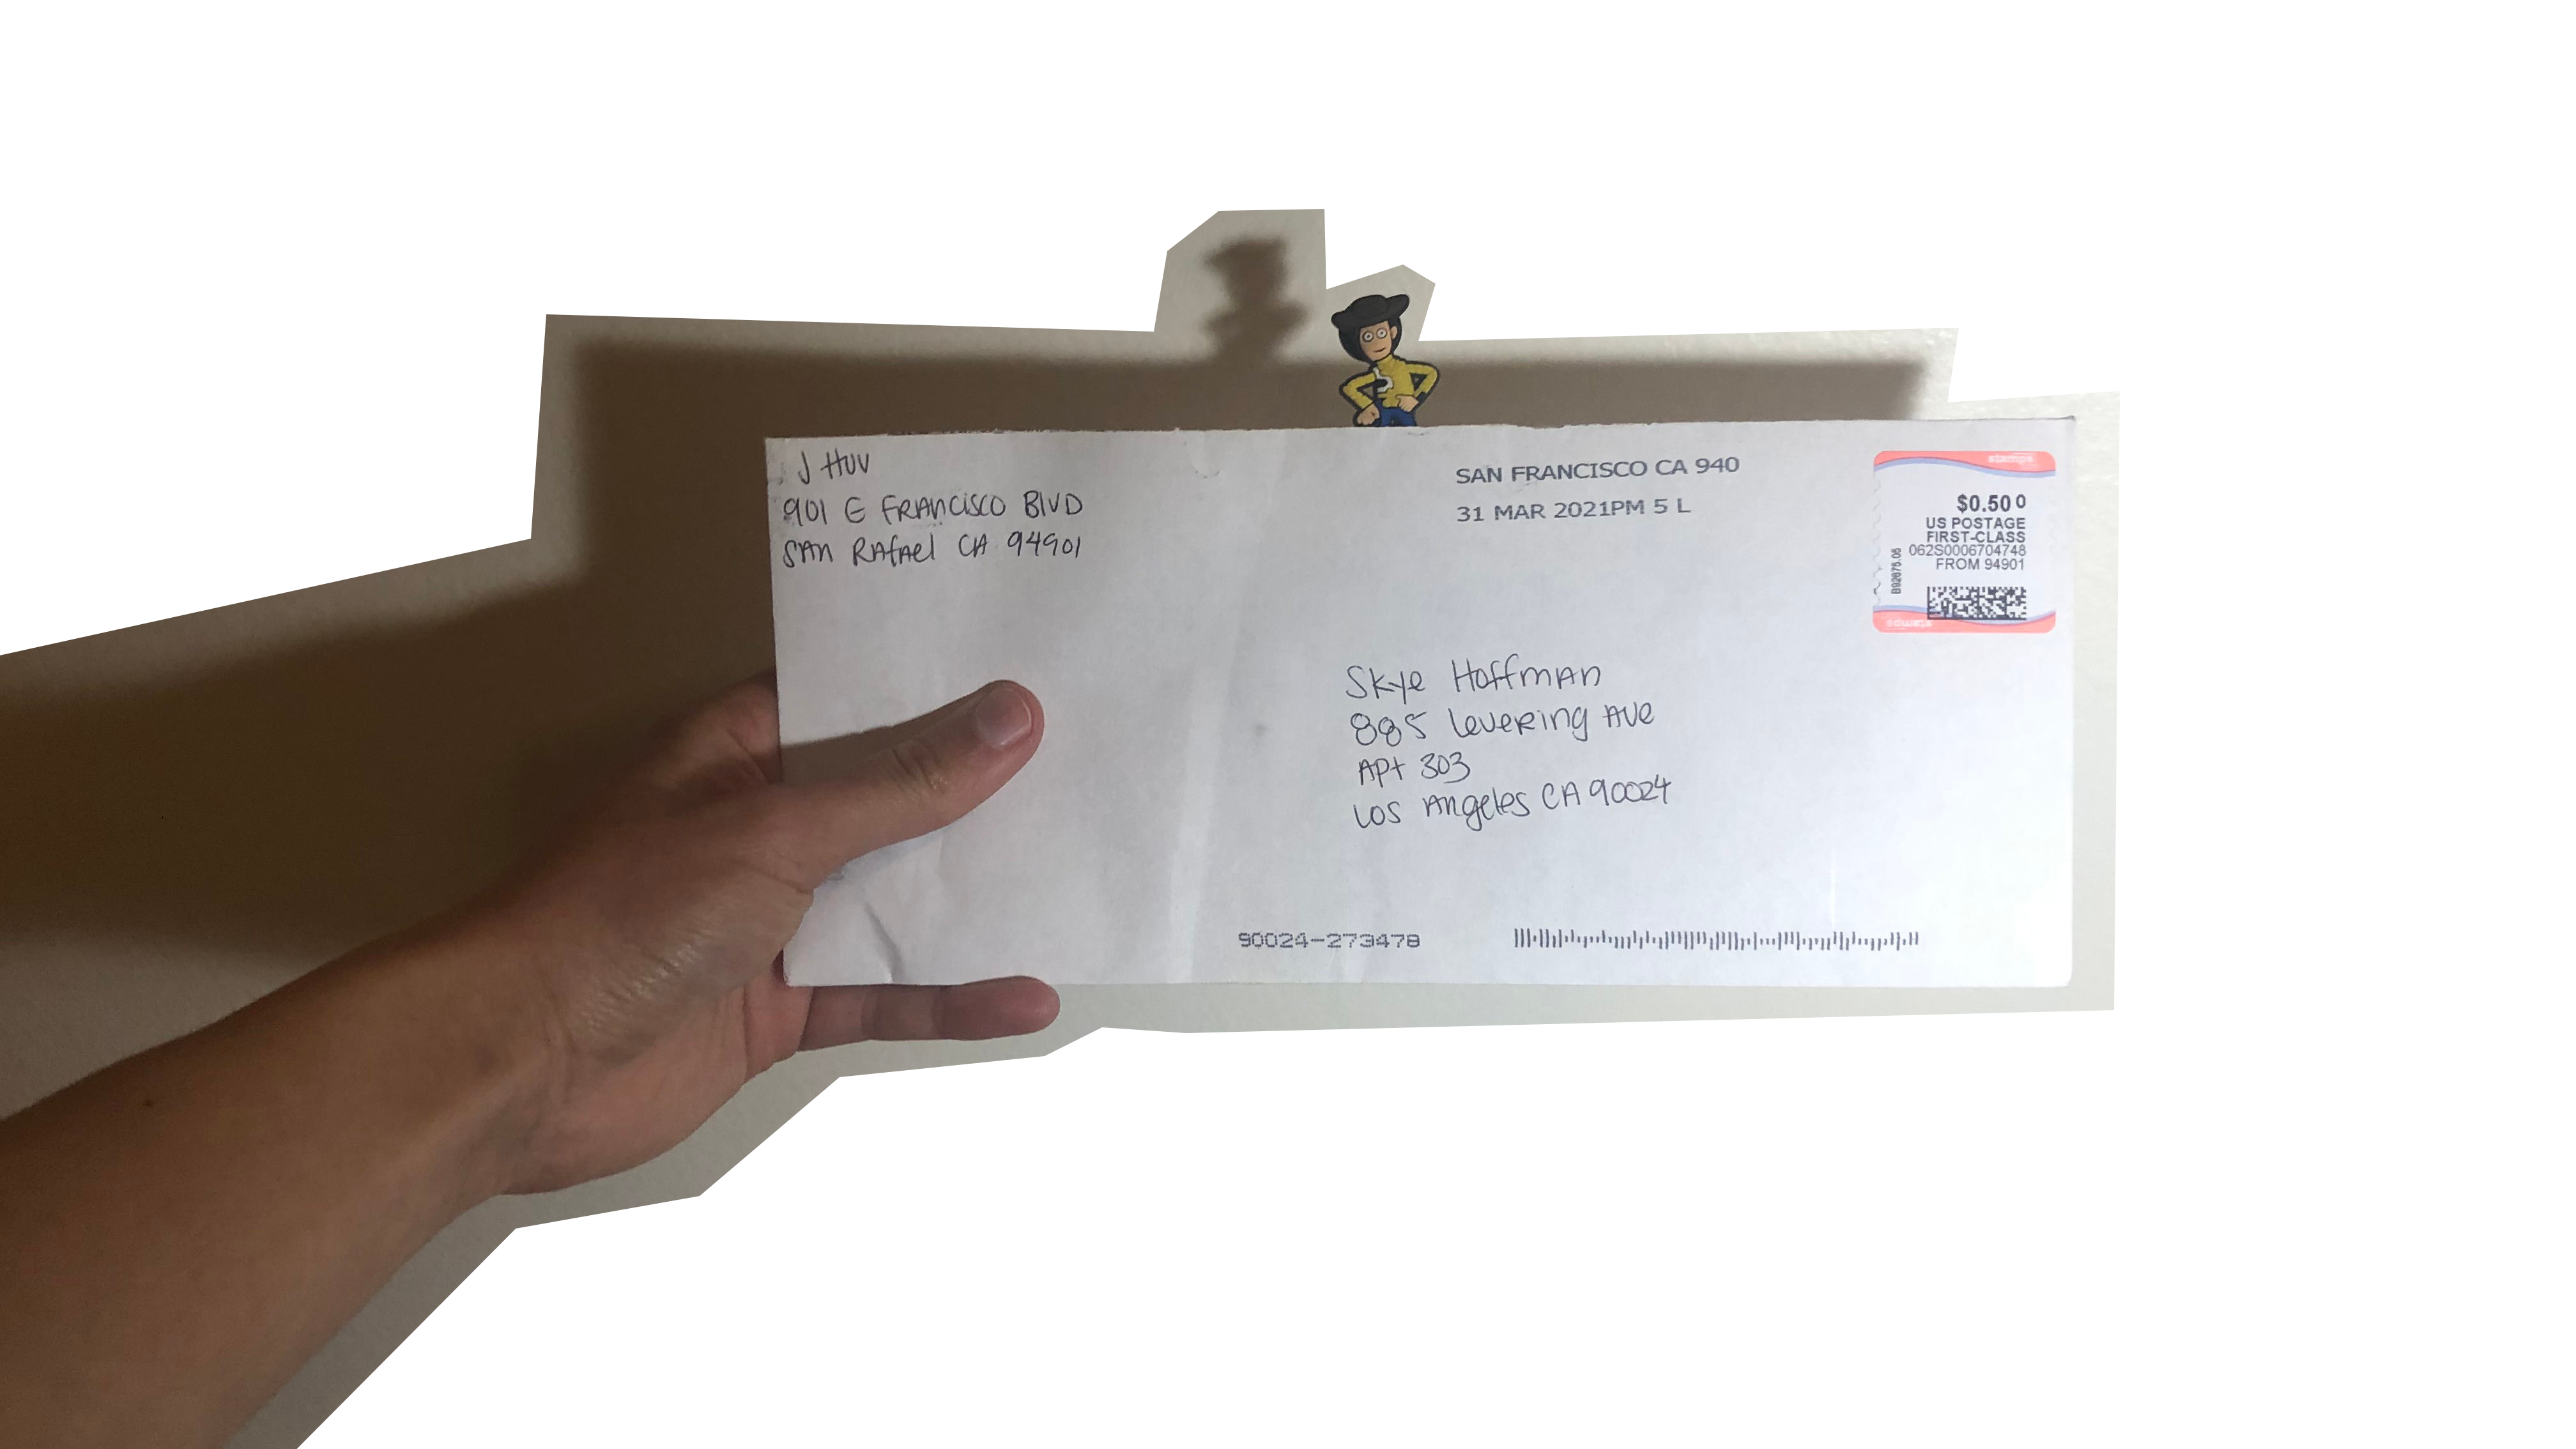 J HUV
901 E FRANCISCO BLVD
SAN RAFAEL CA 94901
SAN FRANCISCO CA 940
31 MAR 2021PM 5 L
stamps
$0.50 0
US POSTAGE
FIRST-CLASS
062S0006704748
FROM 94901
stamps
Skye Hoffman
885 Levering Ave
Apt 303
Los Angeles CA 90024
90024-273478